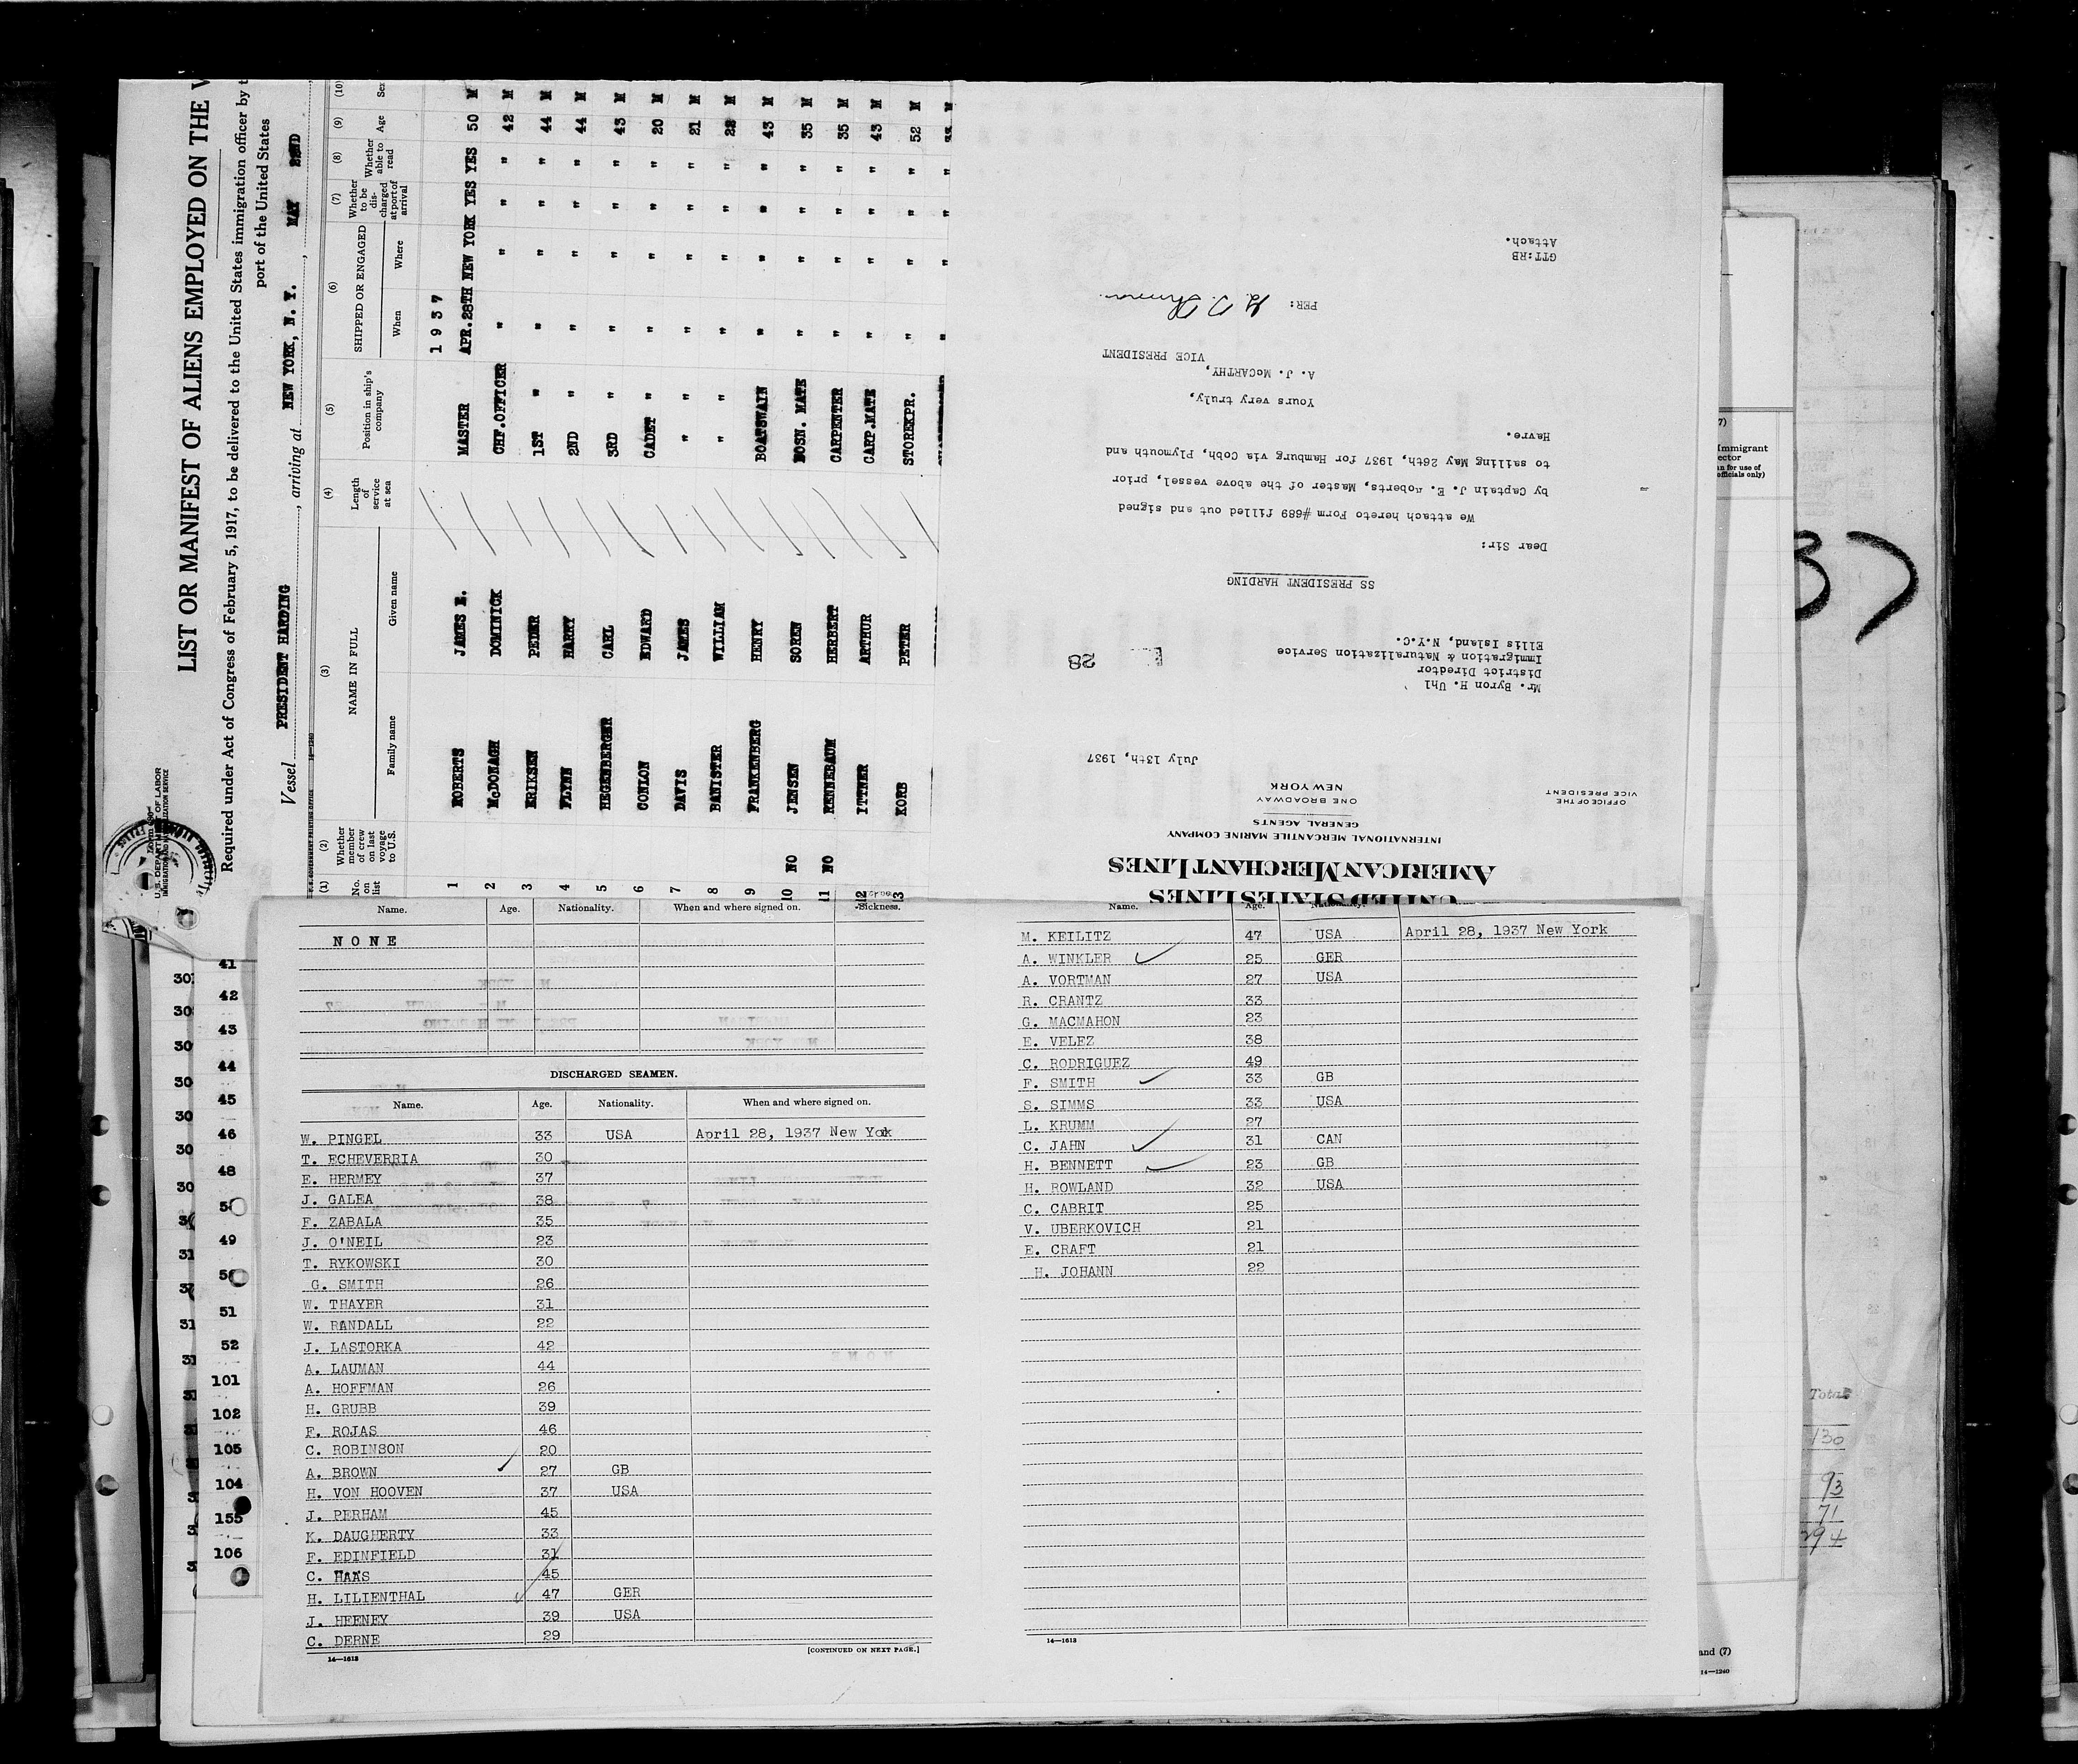 LIST OR MANIFEST OF ALIENS EMPLOYED ON THE
Required under Act of Congress of February 5, 1917, to be delivered to the United States immigration officer by
port of the United States
Vessel PRESIDENT HARDING, arriving at NEW YORK, N. Y., MAY 22ND
U. S. DEPARTMENT OF LABOR
IMMIGRATION AND NATURALIZATION SERVICE
(1) No. on list
(2) Whether member of crew on last voyage to U.S.
(3) NAME IN FULL
Family name Given name
(4) Length of service at sea
(5) Position in ship's company
(6) SHIPPED OR ENGAGED
When Where
(7) Whether to be discharged at port of arrival
(8) Whether able to read
(9) Age
(10)
1937
1 ROBERTS JAMES E. MASTER APR.28TH NEW YORK YES YES 50 M
2 McDONAGH DOMINICK CHF.OFFICER " " " " 42 M
3 ERIKSEN PEDER 1ST " " " " " 44 M
4 FLYNN HARRY 2ND " " " " " 44 M
5 HEGENBERGER CARL 3RD " " " " " 43 M
6 CONLON EDWARD CADET " " " " " 20 M
7 DAVIS JAMES " " " " " " 21 M
8 BANISTER WILLIAM " " " " " " 22 M
9 FRANKENBERG HENRY BOATSWAIN " " " " 43 M
10 NO JENSEN SOREN BOSN. MATE " " " " 35 M
11 NO RENNEBAUM HERBERT CARPENTER " " " " 35 M
12 ITTNER ARTHUR CARP.MATE " " " " 43 M
13 KORB PETER STOREKPR. " " " " 52 M
UNITED STATES LINES
AMERICAN MERCHANT LINES
INTERNATIONAL MERCANTILE MARINE COMPANY
GENERAL AGENTS
ONE BROADWAY
NEW YORK
OFFICE OF THE
VICE PRESIDENT
July 13th, 1937
Mr. Byron H. Uhl
District Director
Immigration & Naturalization Service
Ellis Island, N.Y.C.
28
SS PRESIDENT HARDING
Dear Sir:
We attach hereto Form #689 filled out and signed
by Captain J. E. Roberts, Master of the above vessel, prior
to sailing May 26th, 1937 for Hamburg via Cobh, Plymouth and
Havre.
Yours very truly,
A. J. McCARTHY,
VICE PRESIDENT
PER:
GTT:RB
Attach.
Name. Age. Nationality. When and where signed on. Sickness.
NONE
DISCHARGED SEAMEN.
Name. Age. Nationality. When and where signed on.
W. PINGEL 33 USA April 28, 1937 New Yok
T. ECHEVERRIA 30
E. HERMEY 37
J. GALEA 38
F. ZABALA 35
J. O'NEIL 23
T. RYKOWSKI 30
G. SMITH 26
W. THAYER 31
W. RANDALL 22
J. LASTORKA 42
A. LAUMAN 44
A. HOFFMAN 26
H. GRUBB 39
F. ROJAS 46
C. ROBINSON 20
A. BROWN 27 GB
H. VON HOOVEN 37 USA
J. PERHAM 45
K. DAUGHERTY 33
F. EDINFIELD 31
C. HAAS 45
H. LILIENTHAL 47 GER
J. HEENEY 39 USA
C. DERNE 29
14—1613
[CONTINUED ON NEXT PAGE.]
Name. Age. Nationality.
M. KEILITZ 47 USA April 28, 1937 New York
A. WINKLER 25 GER
A. VORTMAN 27 USA
R. CRANTZ 33
G. MACMAHON 23
E. VELEZ 38
C. RODRIGUEZ 49
F. SMITH 33 GB
S. SIMMS 33 USA
L. KRUMM 27
C. JAHN 31 CAN
H. BENNETT 23 GB
H. ROWLAND 32 USA
C. CABRIT 25
V. UBERKOVICH 21
E. CRAFT 21
H. JOHANN 22
14—1613
41
42
43
44
45
46
48
49
51
52
101
102
105
104
155
106
37
Immigrant
officials only)
Total
130
93
71
294
and (7)
14—1240